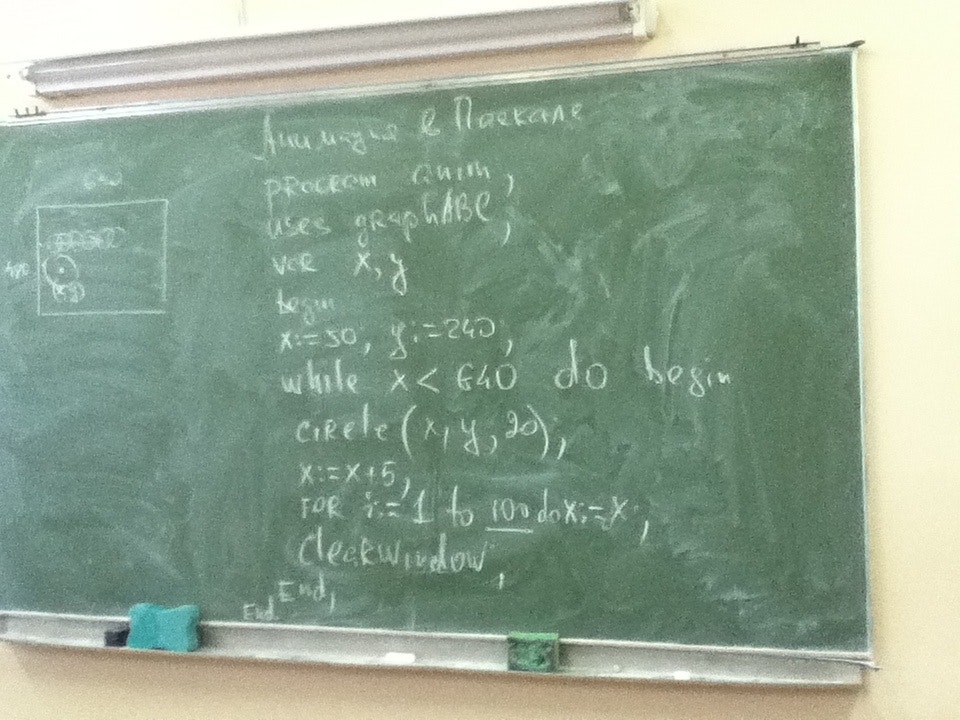 Анимация в Паскале
program anim;
uses graphABC;
var x, y
begin
x:=50; y:=240;
while x < 640 do begin
circle(x, y, 20);
x:=x+5;
FOR i:=1 to 100 do x:=x;
Clearwindow;
End;
End
640
480